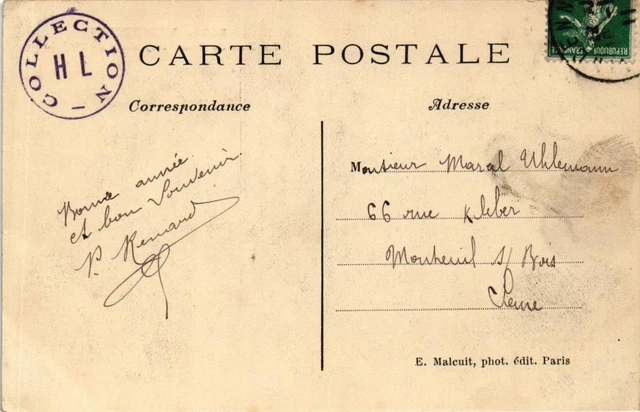 COLLECTION
HL
CARTE POSTALE
RÉPUBLIQUE FRANÇAISE
Correspondance
Bonne année
et bon Souvenir
P. Renard
Adresse
Monsieur Marcel Uhlemann
66 rue Kleber
Montreuil s/ Bois
Seine
E. Malcuit, phot. édit. Paris